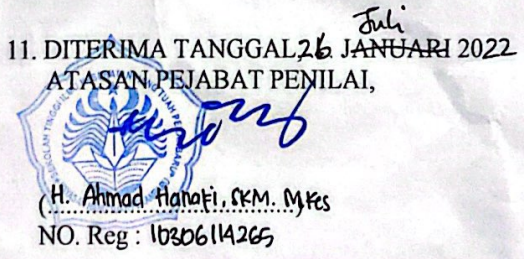 Juli
11. DITERIMA TANGGAL, 26 JANUARI 2022
ATASAN PEJABAT PENILAI,
(H. Ahmad Hanafi, SKM. M.Kes
NO. Reg : 10306114265